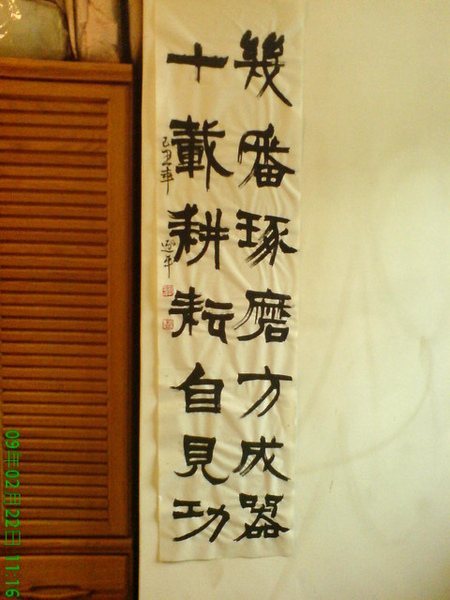 幾番琢磨方成器
十載耕耘自見功
己丑年
09年02月22日 11:16